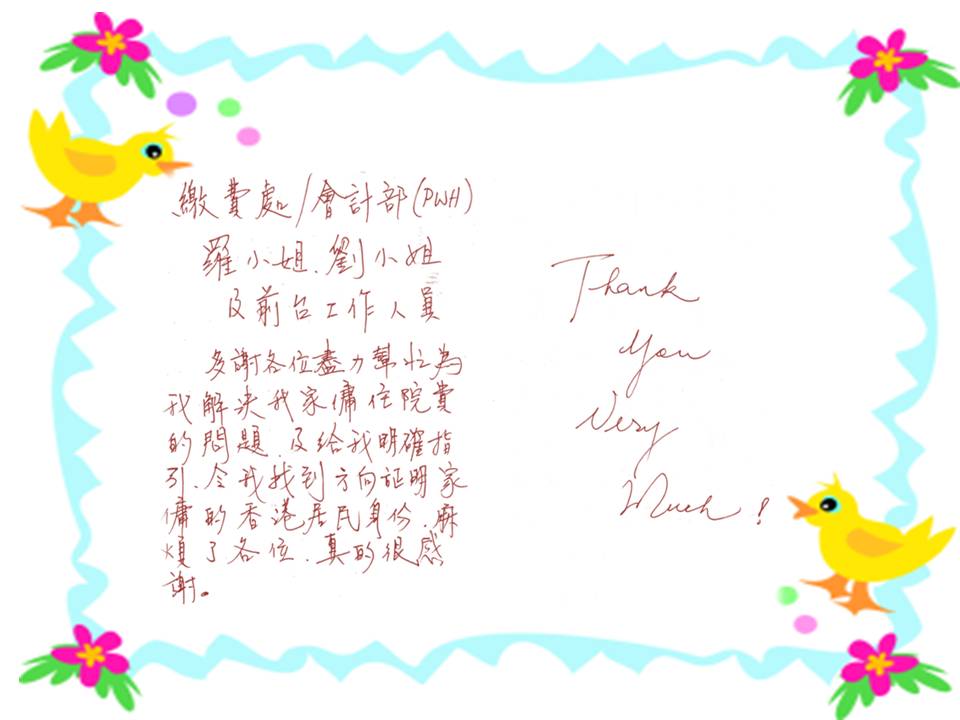 繳費處/會計部(PWH)
羅小姐、劉小姐
及前台工作人員
多謝各位盡力幫忙為
我解決我家傭住院費
的問題、及給我明確指
引、令我找到方向証明家
傭的香港居民身份、麻
煩了各位、真的很感
謝。
Thank
You
Very
Much!